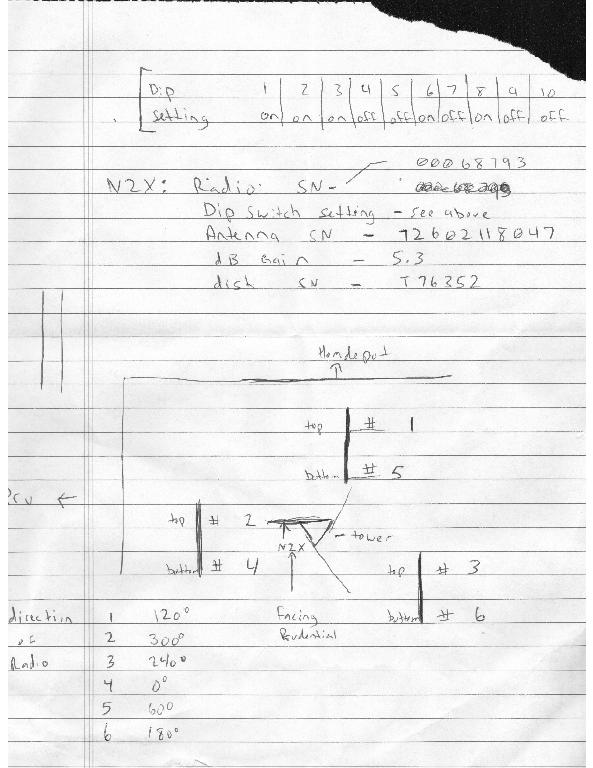 Dip 1 2 3 4 5 6 7 8 9 10
setting on on on off off on off on off off
00068793
N2X: Radio: SN -
Dip Switch setting - see above
Antenna SN - 72602118047
dB Gain - 5.3
dish SN - T76352
Homdepot
top # 1
bottom # 5
Prv ←
top # 2
N2X
- tower
bottom # 4
top # 3
bottom # 6
Facing
Prudential
direction 1 120°
of 2 300°
Radio 3 240°
4 0°
5 60°
6 180°